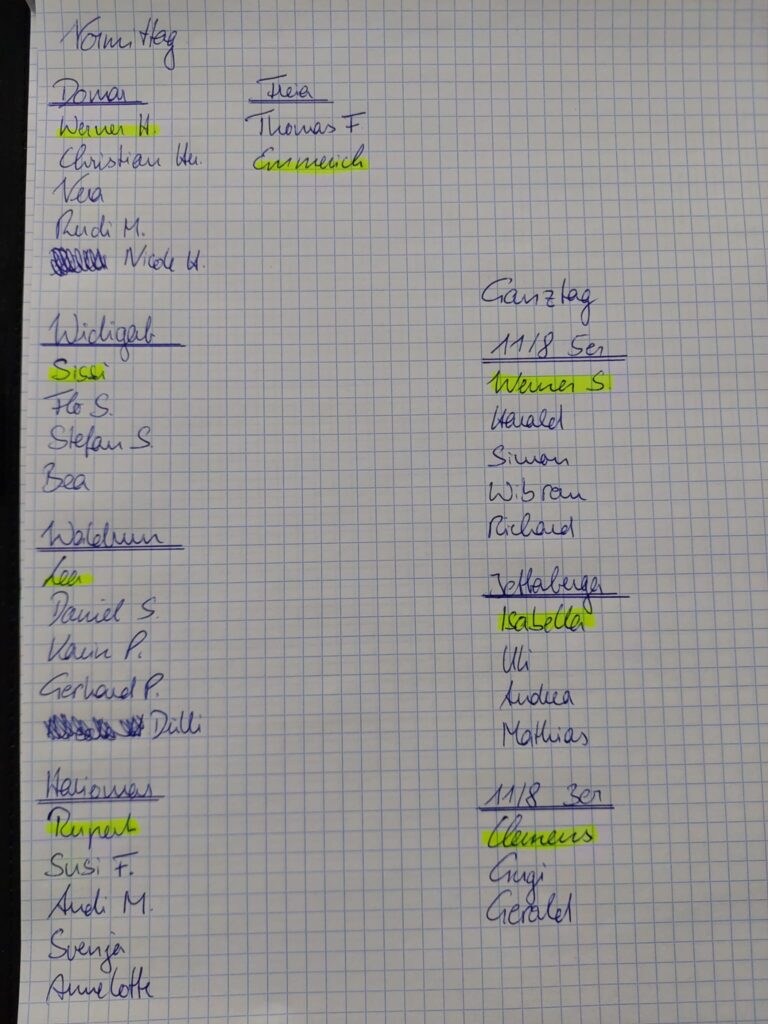 Vormittag
Donar
Werner H.
Christian Hu.
Vera
Rudi M.
Nicole H.
Freia
Thomas F.
Emmerich
Widigab
Sissi
Flo S.
Stefan S.
Bea
Waldrun
Lea
Daniel S.
Karin P.
Gerhard P.
Dulli
Hariomar
Rupert
Susi F.
Andi M.
Svenja
Annelotte
Ganztag
11/8 5er
Werner S
Harald
Simon
Wibran
Richard
Isabella
Uli
Andrea
Mathias
11/8 3er
Clemens
Gugi
Gerald